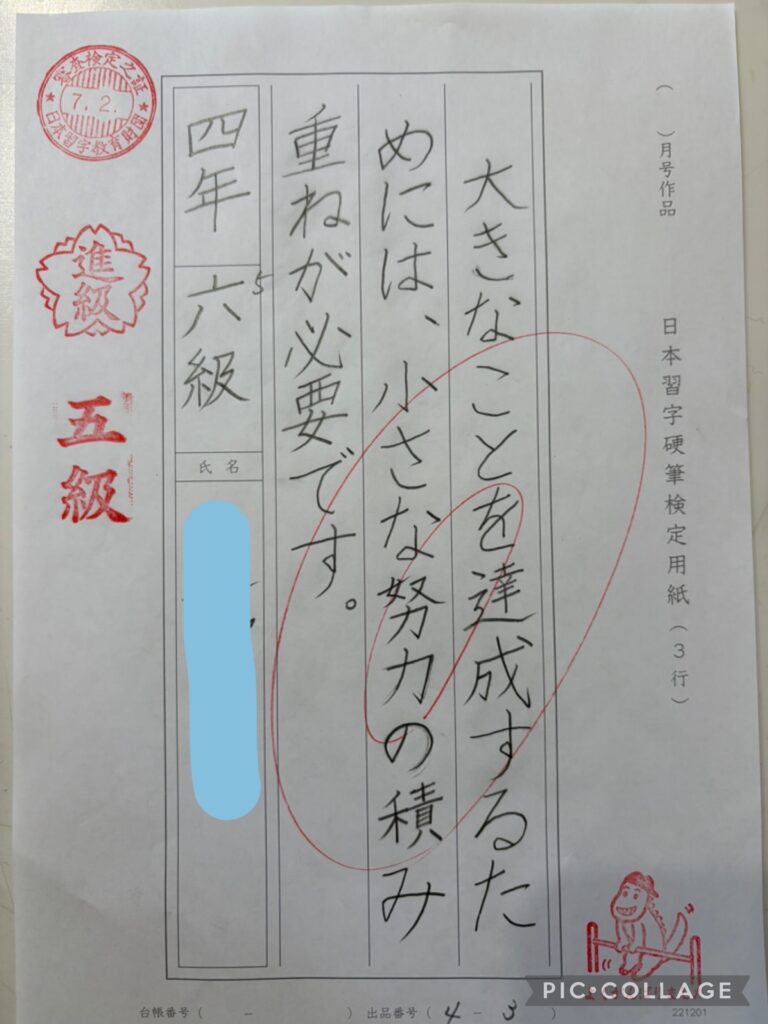 ( )月号作品
日本習字硬筆検定用紙(3行)
大きなことを達成するた
めには、小さな努力の積み
重ねが必要です。
四年 六級
5
氏名
審査検定之証
7.2.
日本習字教育財団
進級
五級
台帳番号( - )
出品番号( 4 - 3 )
221201
PIC•COLLAGE